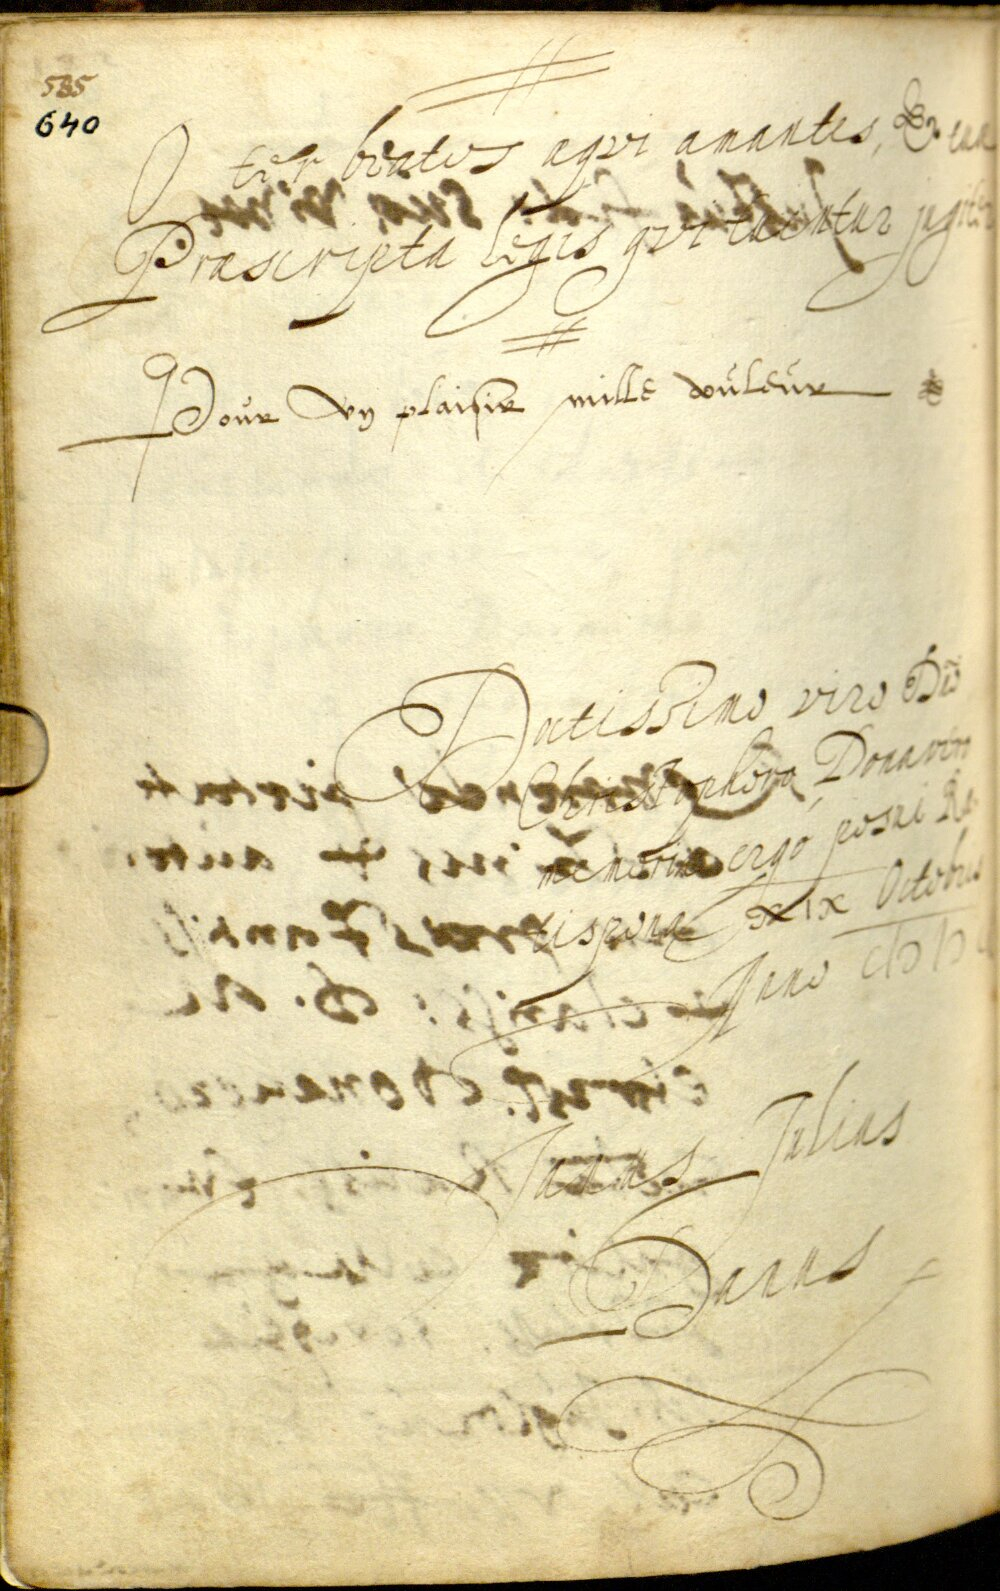 535
640
O ter beatos aqui amantes, &
Prascripta legis qui tuentur jugiter
Pour vn plaisir mille douleur
Doctissimo viro Dño
Christophoro Donavero
memoriae ergo posui Ra-
tisponae XIX Octobris
Anno
Janus Julius
Danus